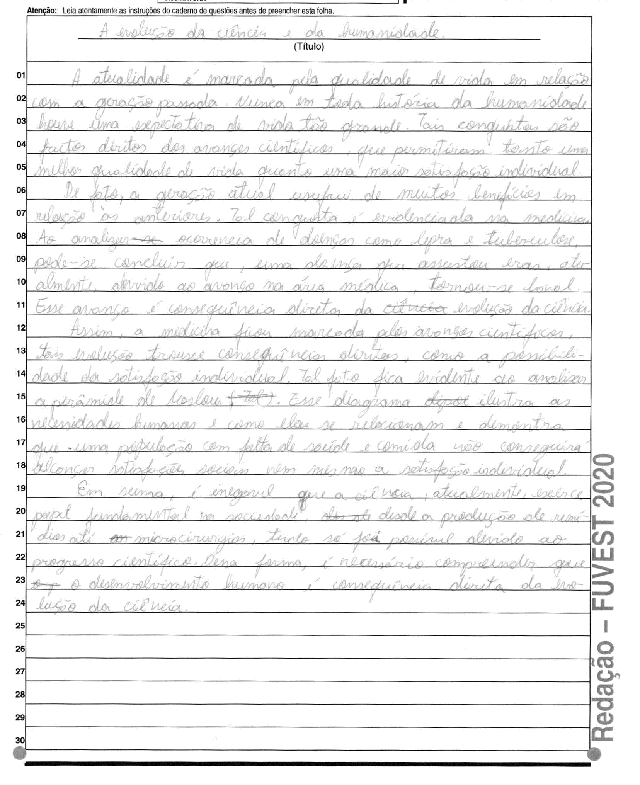 Atenção: Leia atentamente as instruções do caderno de questões antes de preencher esta folha.
A evolução da ciência e da humanidade
(Título)
01 A atualidade é marcada pela qualidade de vida em relação
02 com a geração passada. Nunca em toda história da humanidade
03 houve uma expectativa de vida tão grande. Tais conquistas são
04 fructos diretos dos avanços científicos, que permitiram tanto uma
05 melhor qualidade de vida quanto uma maior satisfação individual
06 De fato, a geração atual usufrui de muitos benefícios em
07 relação as anteriores. Tal conquista é evidenciada na medicina.
08 Ao analizar se ocorrencia de doenças como lepra e tuberculose,
09 pode-se concluir que, uma doença que assustou eras, atu-
10 almente, devido ao avanço na área médica, tornou-se banal.
11 Esse avanço é consequência direta da ciência evolução da ciência.
12 Assim, a medicina ficou marcada pelos avanços científicos,
13 tais evolução trouxe consequências diretas, como a possibili-
14 dade da satisfação individual. Tal fato fica evidente ao analizar
15 a pirâmide de Maslow (Tal). Esse diagrama ilustra as
16 necenidades humanas e como elas se relacionam e demonstra
17 que uma população com falta de saúde e comida não conseguirá
18 alcançar satisfações sociais nem mesmo a satisfação individual
19 Em suma, é inegavel que a ciência, atualmente, exerce
20 papel fundamental na sociedade desde a produção de remé-
21 dios até microcirurgias, tudo se foi possivel devido ao
22 progresso científico. Dessa forma, é necessário compreender que
23 o desenvolvimento humano é consequência direta da evo-
24 lução da ciência.
25
26
27
28
29
30
Redação – FUVEST 2020